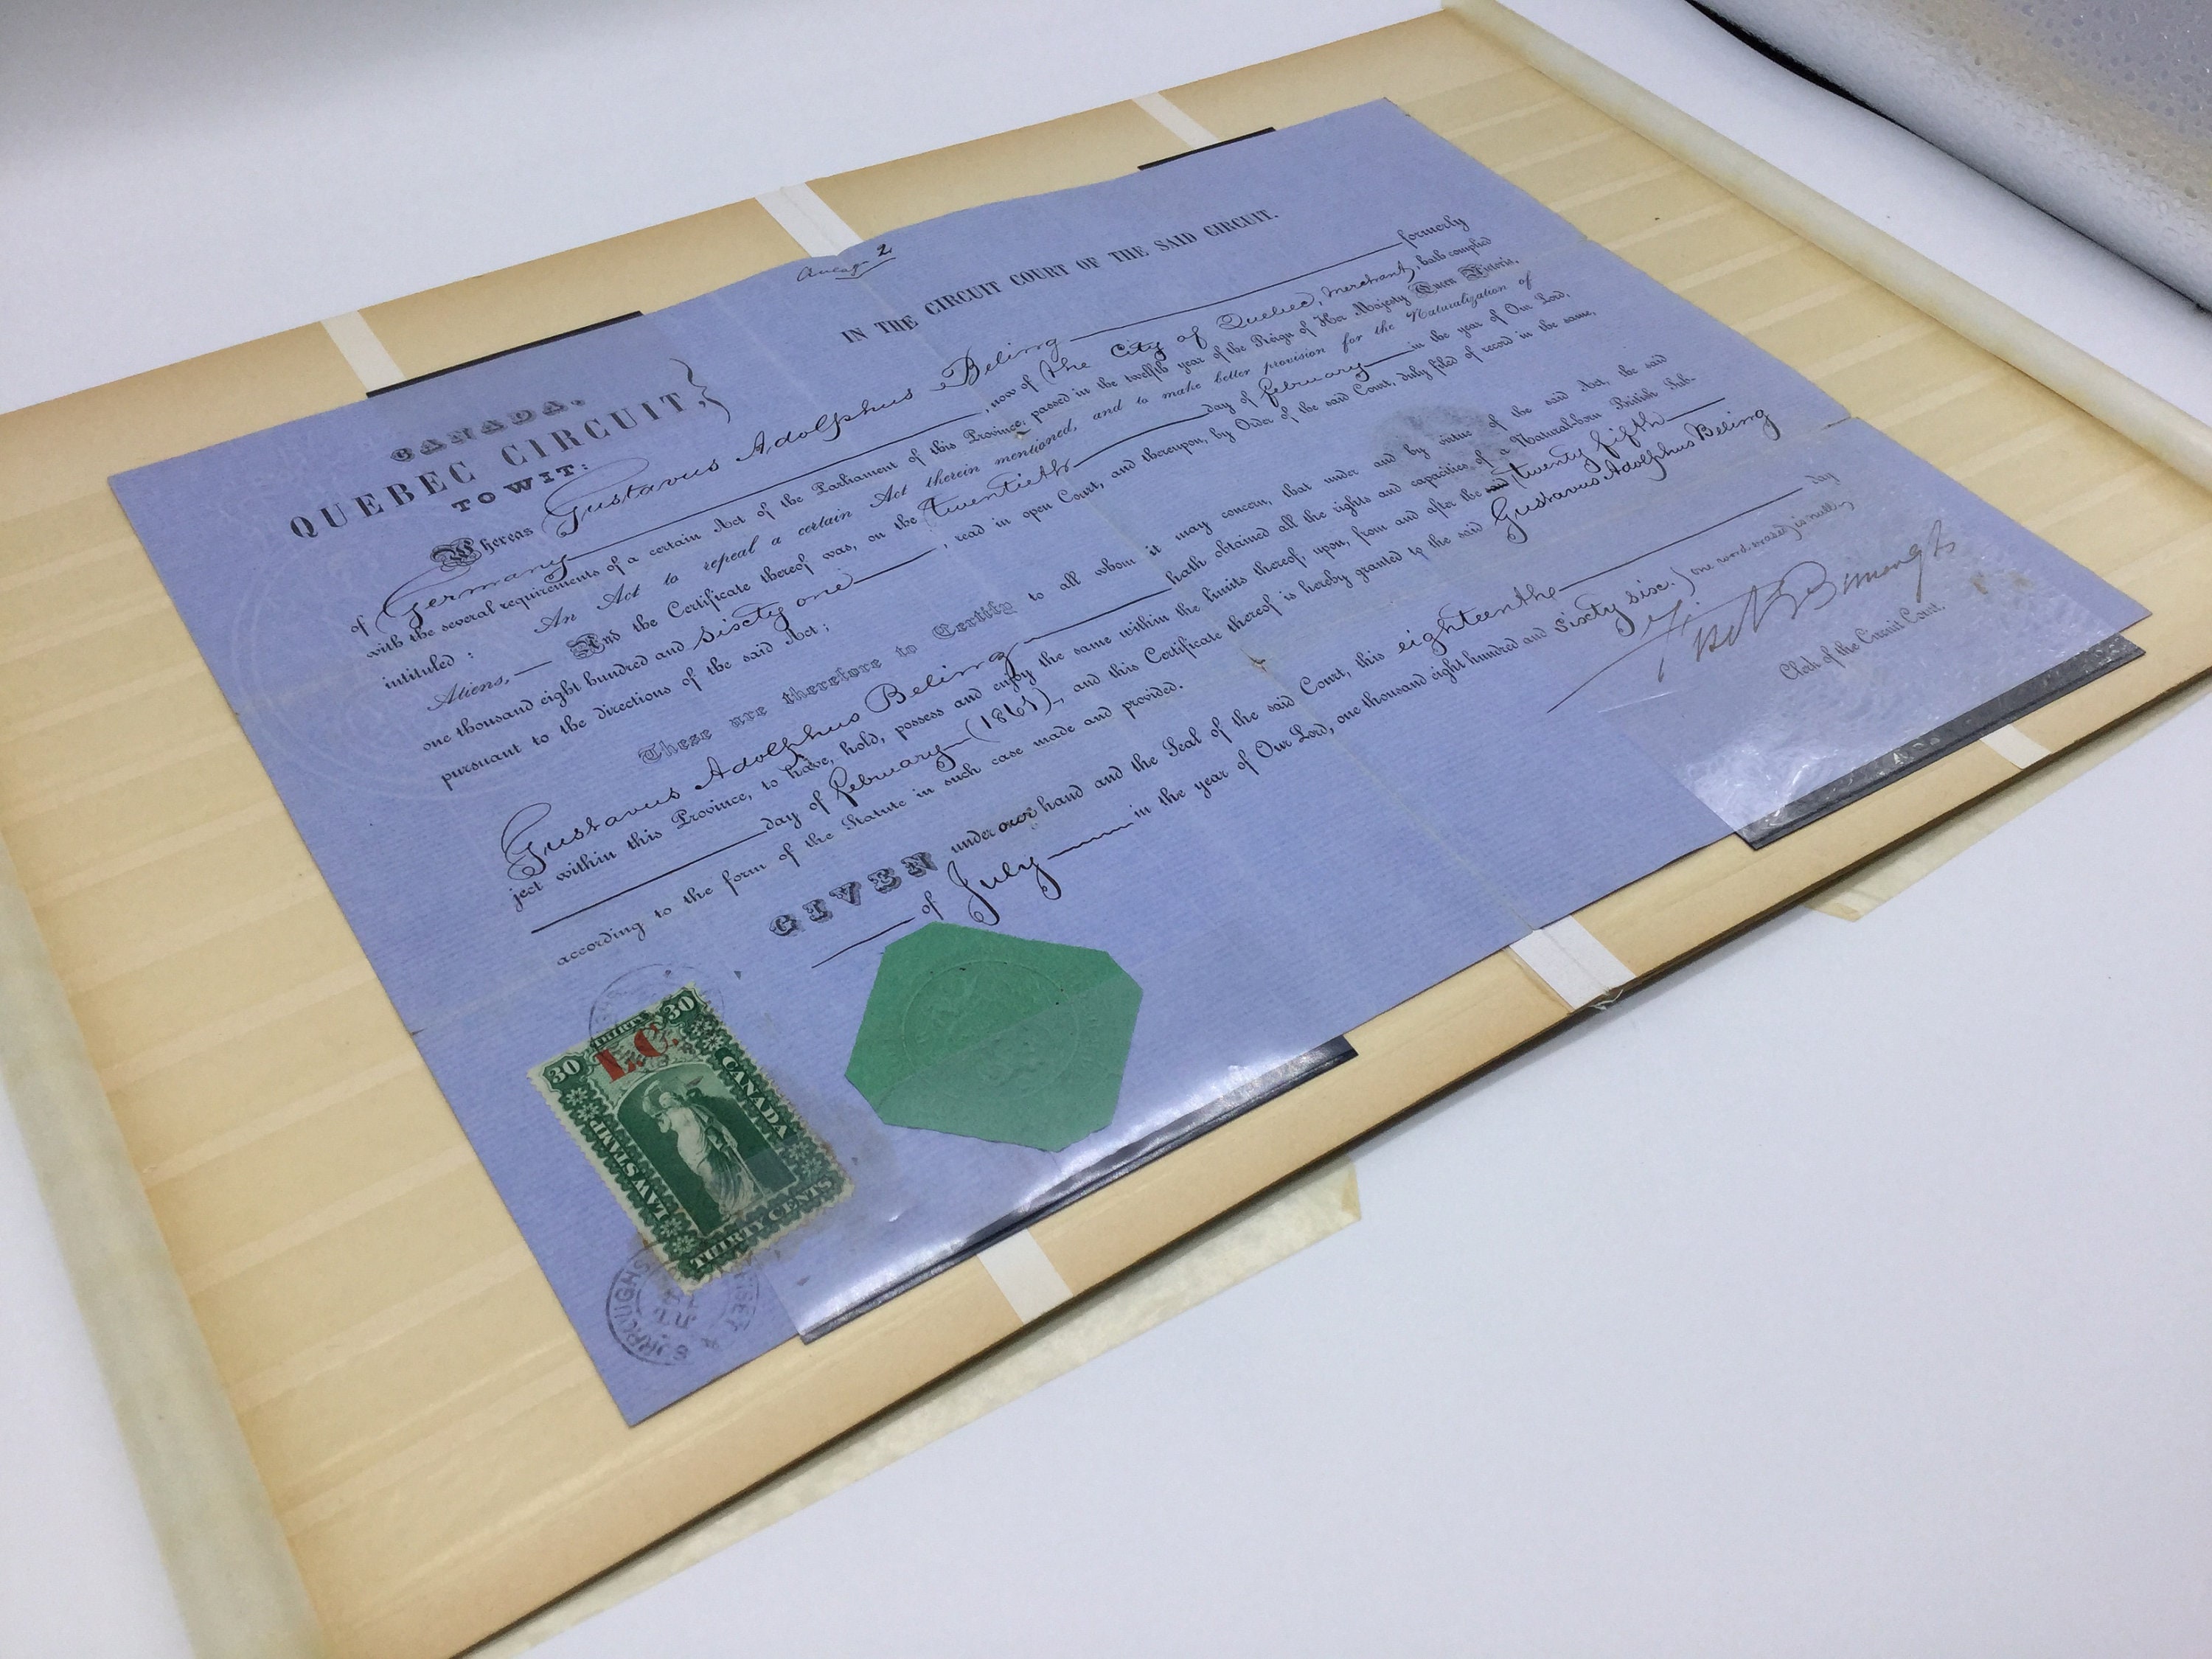 2
IN THE CIRCUIT COURT OF THE SAID CIRCUIT.
CANADA.
QUEBEC CIRCUIT,
TO WIT:
Whereas Gustavus Adolphus Beling formerly
of Germany, now of the City of Quebec, Merchant, hath complied
with the several requirements of a certain Act of the Parliament of this Province, passed in the twelfth year of the Reign of Her Majesty Queen Victoria,
intituled: An Act to repeal a certain Act therein mentioned, and to make better provision for the Naturalization of
Aliens, And the Certificate thereof was, on the twentieth day of february in the year of Our Lord,
one thousand eight hundred and sixty one, read in open Court, and thereupon, by Order of the said Court, duly filed of record in the same,
pursuant to the directions of the said Act;
These are therefore to Certify to all whom it may concern, that under and by virtue of the said Act, the said
Gustavus Adolphus Beling hath obtained all the rights and capacities of a Natural-born British Sub-
ject within this Province, to have, hold, possess and enjoy the same within the limits thereof, upon, from and after the said twenty fifth
day of february (1861), and this Certificate thereof is hereby granted to the said Gustavus Adolphus Beling
according to the form of the Statute in such case made and provided.
GIVEN under our hand and the Seal of the said Court, this eighteenth day
of July in the year of Our Lord, one thousand eight hundred and sixty six.) one word erased is null
Clerk of the Circuit Court.
30 THIRTY 30
L.C.
LAW STAMP
CANADA
THIRTY CENTS
BURROUGHS